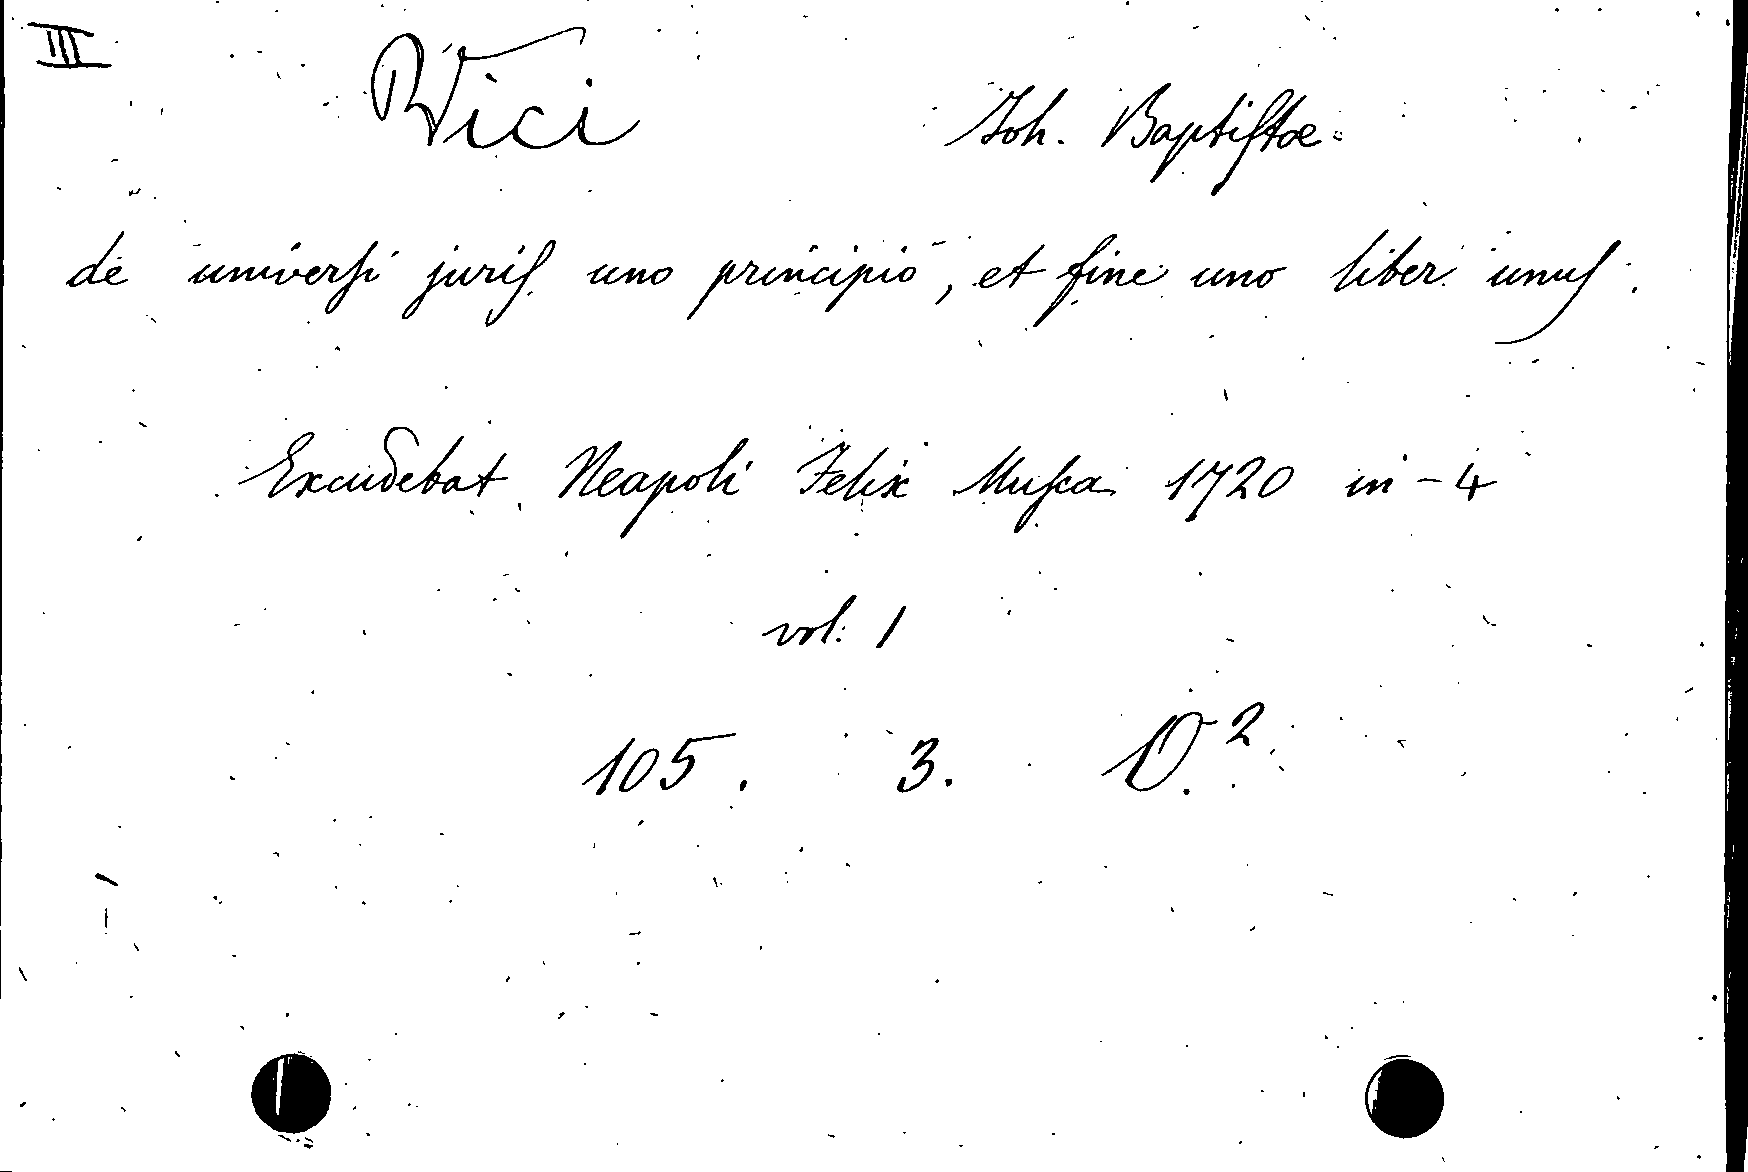 III
Vici Joh. Baptistæ
de universi juris uno principio, et fine uno liber unus.
Excudebat Neapoli Felix Musca 1720 in-4
vol. 1
105. 3. D.²